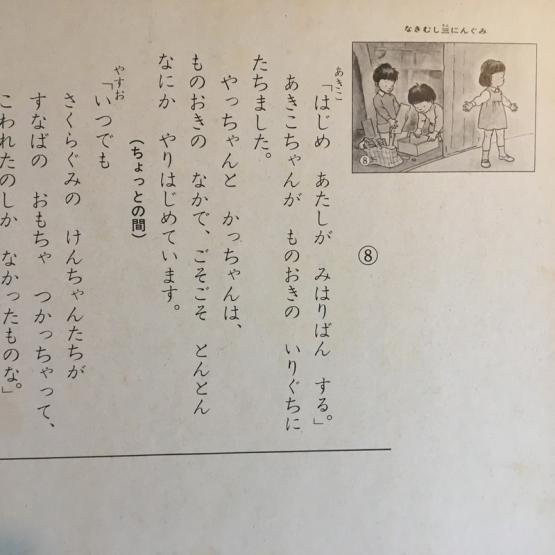 なきむし三にんぐみ
⑧
⑧
あきこ
「はじめ　あたしが　みはりばん　する。」
あきこちゃんが　ものおきの　いりぐちに
たちました。
やっちゃんと　かっちゃんは、
ものおきの　なかで、ごそごそ　とんとん
なにか　やりはじめています。
（ちょっとの間）
やすお
「いつでも
さくらぐみの　けんちゃんたちが
すなばの　おもちゃ　つかっちゃって、
こわれたのしか　なかったものな。」